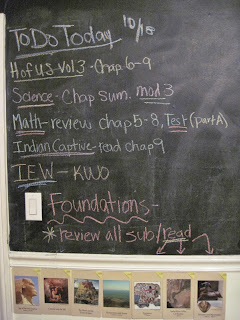 ToDo Today 10/18
Hof US Vol 3 - Chap 6-9
Science - Chap Sum. mod 3
Math - review chap 5-8, Test (part A)
Indian Captive - read chap 9
IEW - KWO
Foundations -
* review all sub/read